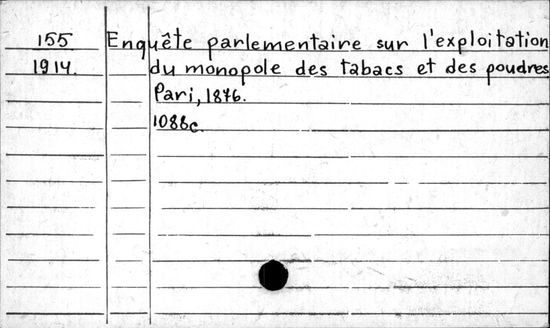 155 Enquête parlementaire sur l'exploitation
1914. du monopole des tabacs et des poudres
Pari, 1876.
1088c.